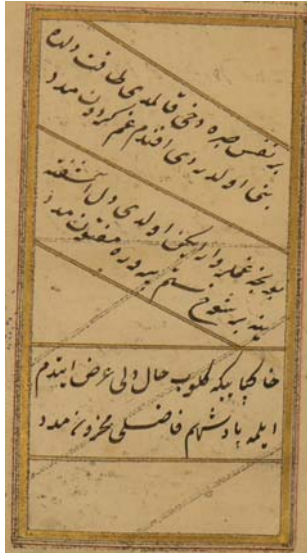 بر نفس صبره دخی قالمدی طاقت دلده
بنی اولدردی افندم غم کردون مدد
بونجه غملر وار ایکن اولدی دل آشفته
ینه بر شوخ ستم پروره مفتون مدد
خاکپایکه کلوب حال دلی عرض ایتدم
ایلمه پادشهم فاضلی محزون مدد